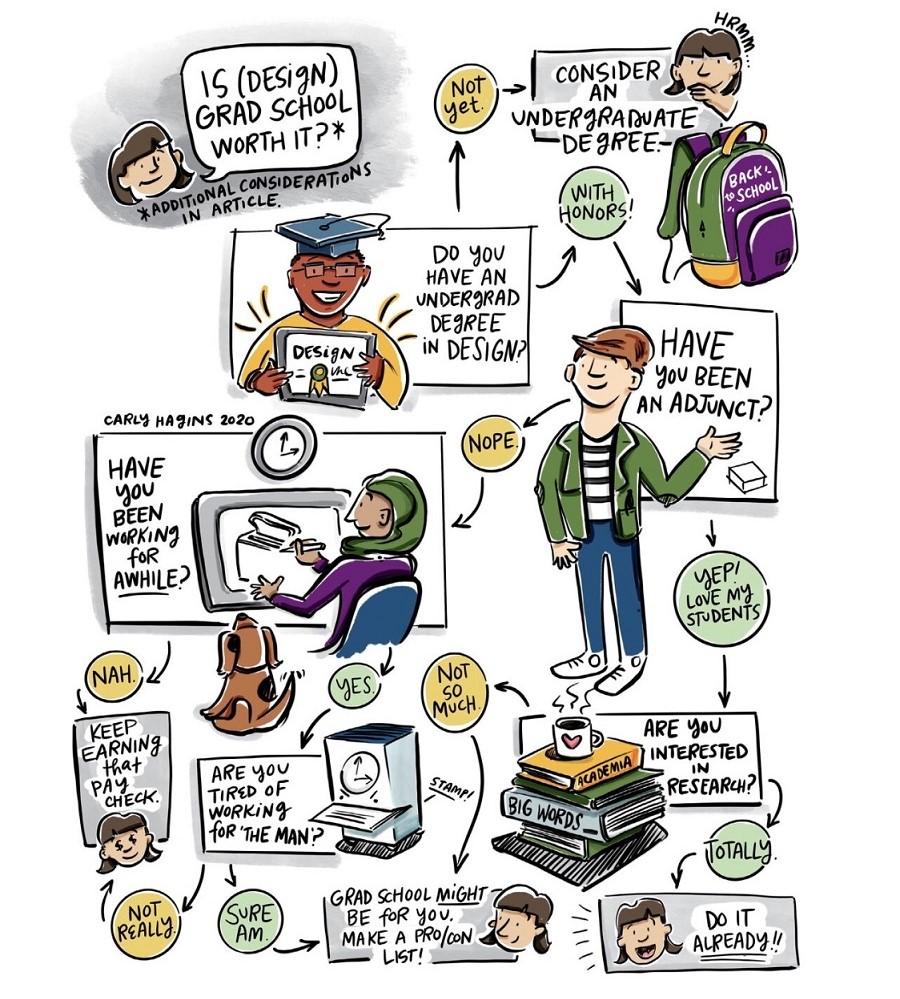 IS (DESIGN)
GRAD SCHOOL
WORTH IT?*
*ADDITIONAL CONSIDERATIONS
IN ARTICLE.
NOT
yet.
CONSIDER
AN
UNDERGRADUATE
DEGREE.
HRMM...
BACK
to SCHOOL
WITH
HONORS!
DO YOU
HAVE AN
UNDERGRAD
DEGREE
iN DESIGN?
DESIGN
HAVE
YOU BEEN
AN ADJUNCT?
NOPE.
CARLY HAGINS 2020
HAVE
YOU
BEEN
WORKING
for
AWHILE?
YEP!
LOVE MY
STUDENTS
NAH.
KEEP
EARNING
that
PAY
CHECK.
YES.
NOT
SO
MUCH.
ARE YOU
TIRED OF
WORKING
for 'THE MAN'?
STAMP!
ARE YOU
INTERESTED
IN
RESEARCH?
ACADEMIA
BIG WORDS
TOTALLY.
NOT
REALLY.
SURE
AM.
GRAD SCHOOL MIGHT
BE FOR YOU.
MAKE A PRO/CON
LIST!
DO IT
ALREADY!!